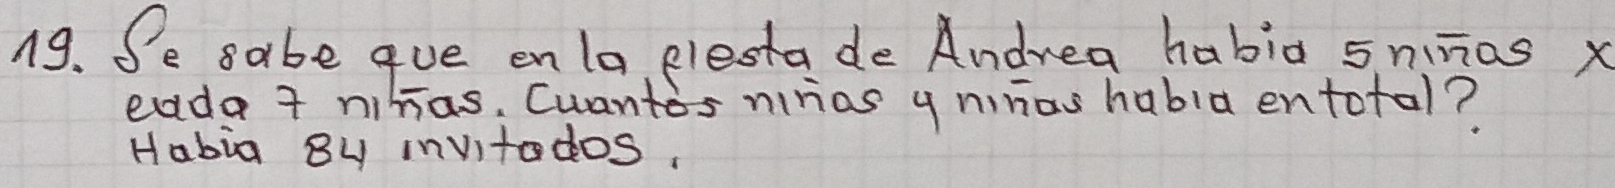 19. Se sabe que en la fiesta de Andrea habia 5 niños x
cada 7 niñas. Cuantos niños y niñas habia en total?
Habia 84 invitados.